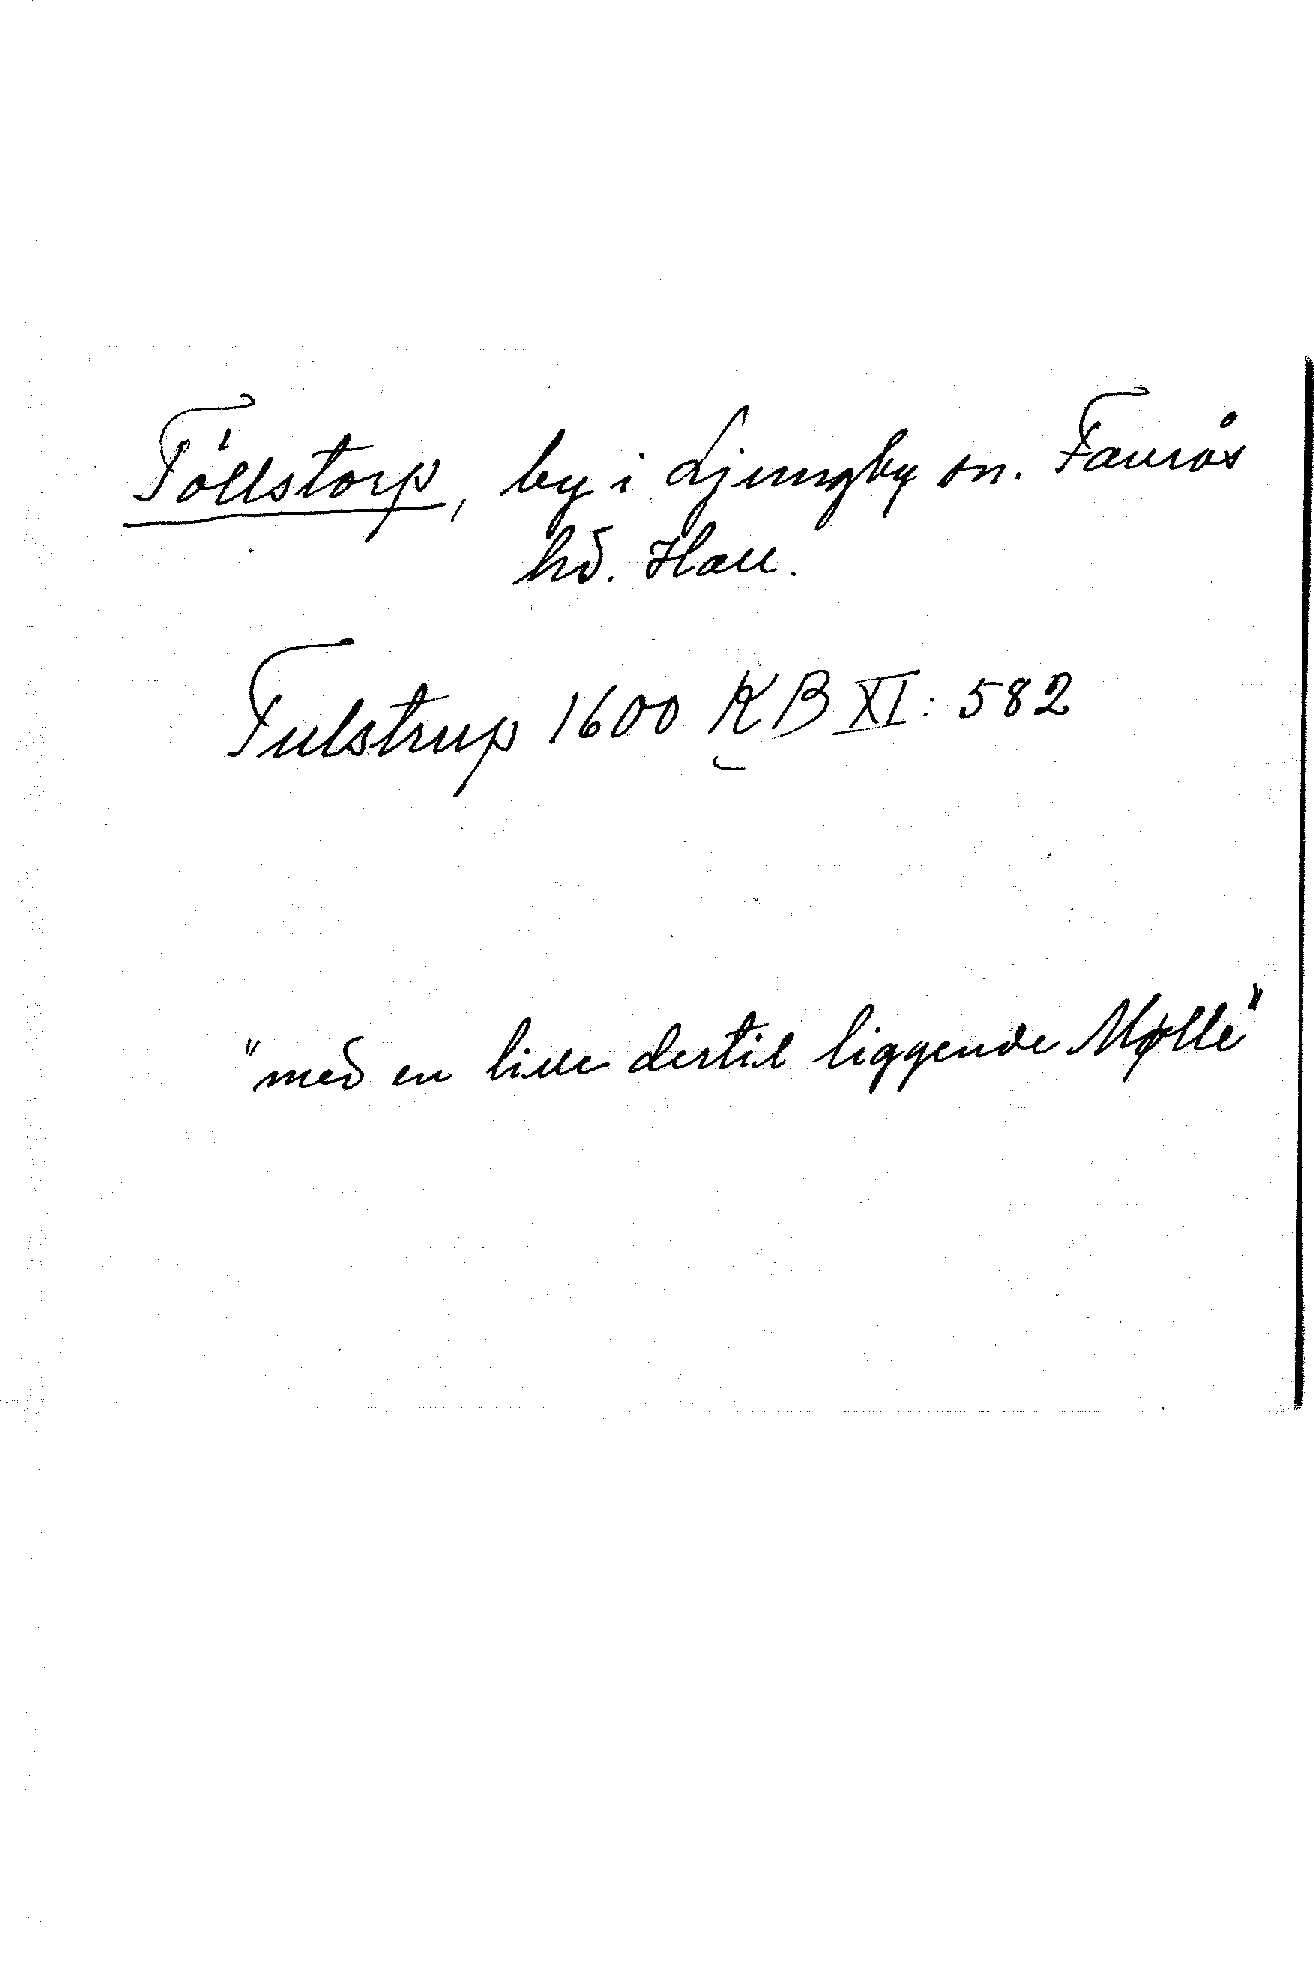 Töllstorp, by i Ljungby sn. Faurås
hd. Hall.
Tulstrup 1600 KB XI: 582
"med en lille dertil liggende Mølle"